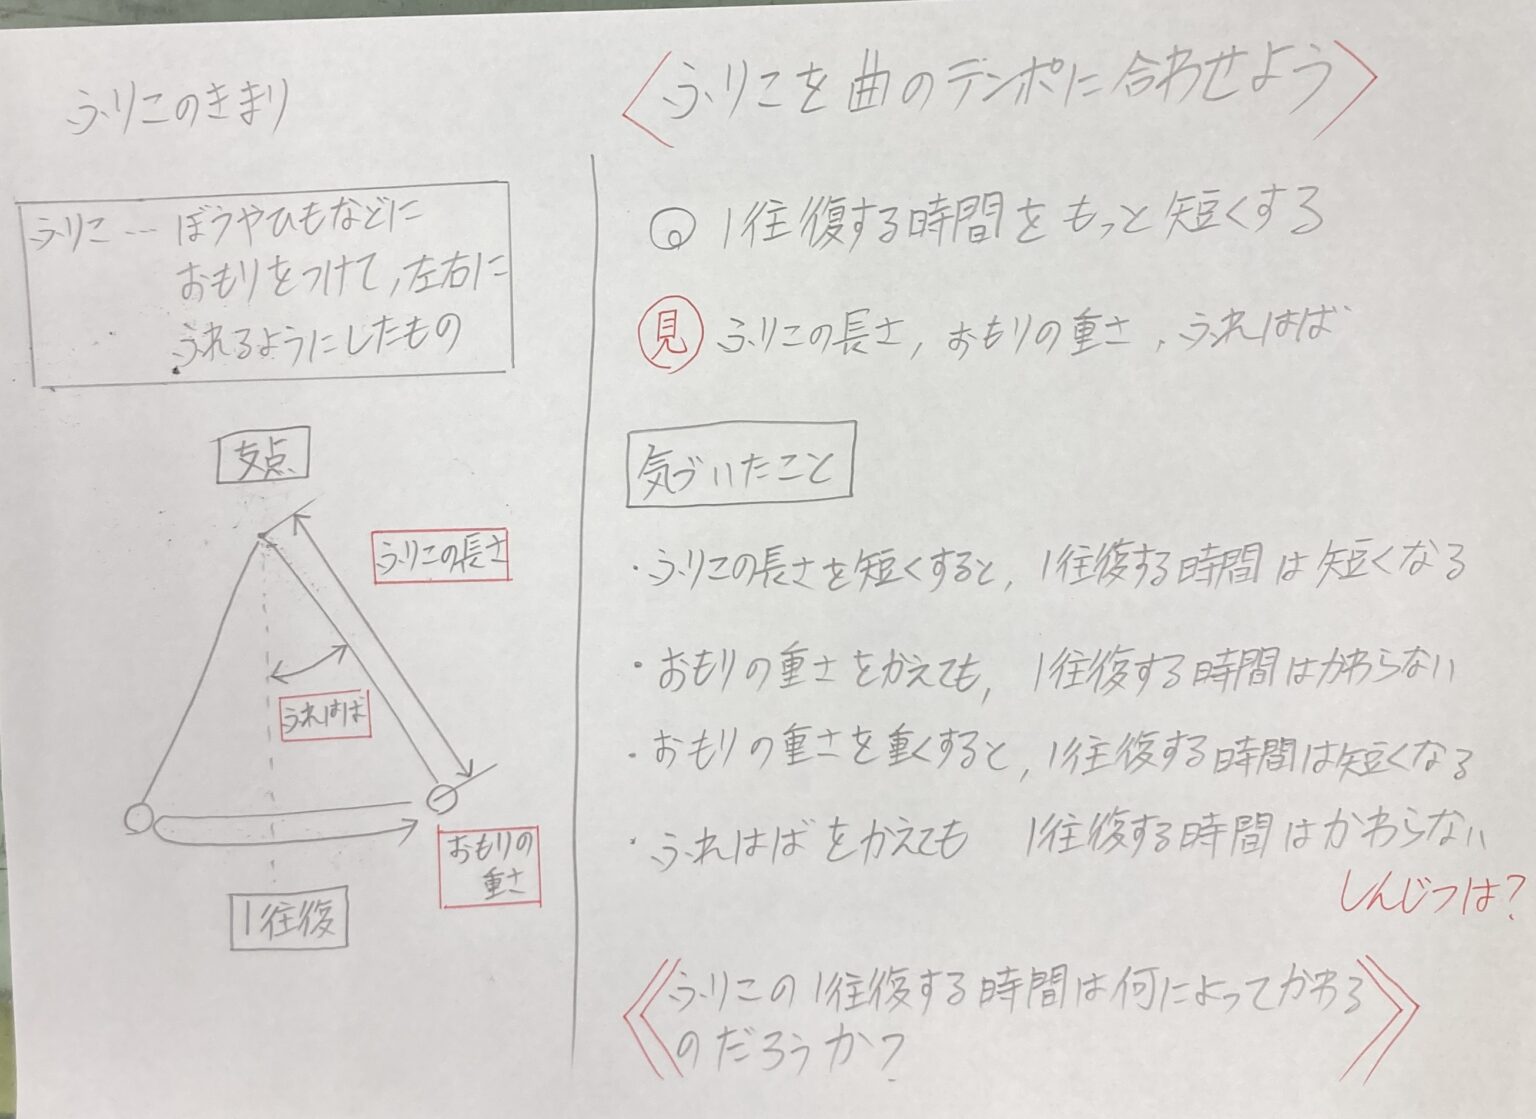 ふりこのきまり
ふりこ… ぼうやひもなどに
おもりをつけて,左右に
ふれるようにしたもの
支点
ふりこの長さ
ふれはば
おもりの
重さ
1往復
〈ふりこを曲のテンポに合わせよう〉
1往復する時間をもっと短くする
見 ふりこの長さ,おもりの重さ,ふれはば
気づいたこと
・ふりこの長さを短くすると,1往復する時間は短くなる
・おもりの重さをかえても,1往復する時間はかわらない
・おもりの重さを重くすると,1往復する時間は短くなる
・ふれはばをかえても 1往復する時間はかわらない
しんじつは?
《ふりこの1往復する時間は何によってかわる
のだろうか?》